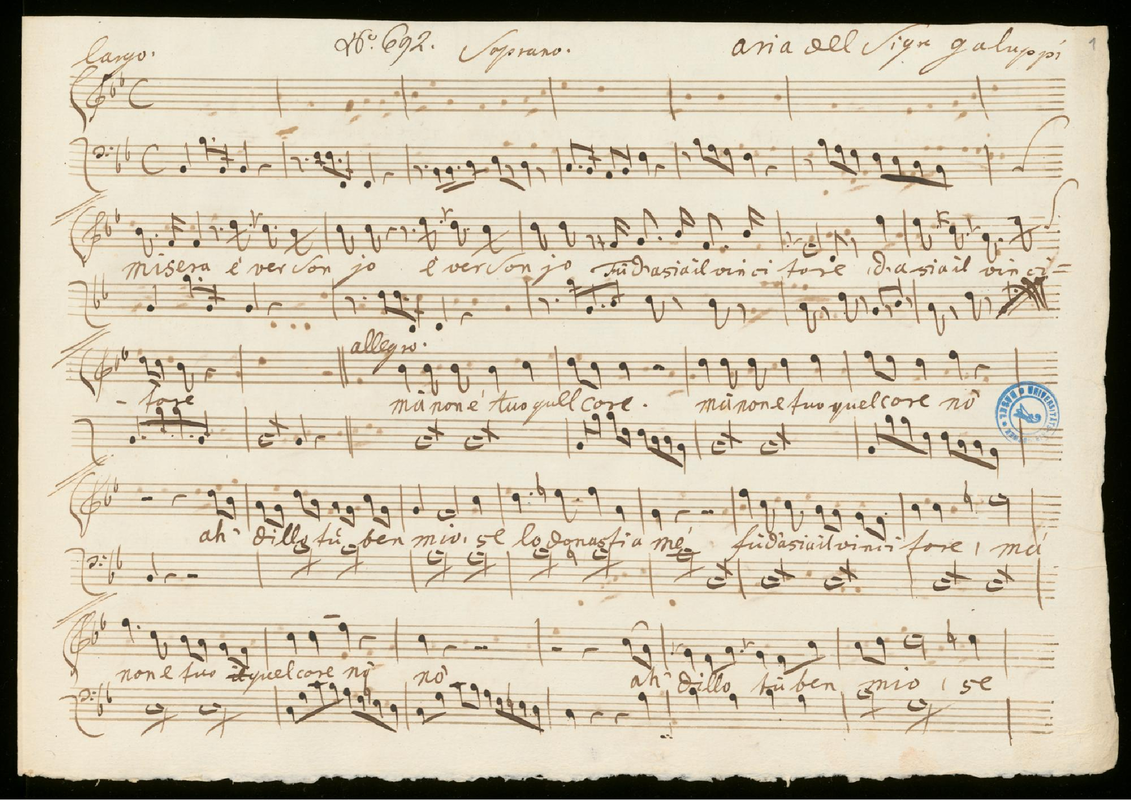 largo. No. 692. Soprano. aria dell Sigr galuppi 1
misera è ver son jo è ver son jo fu dia siail vinci tore , dia siail vinci=
allegro.
- tore ma non é tuo quel core . ma non e tuo quel core nò
ah dillo tù ben mio , se lo donasti a mé fu dia siail vinci tore , ma
non e tuo quel core nò nò ah dillo tù ben mio , se